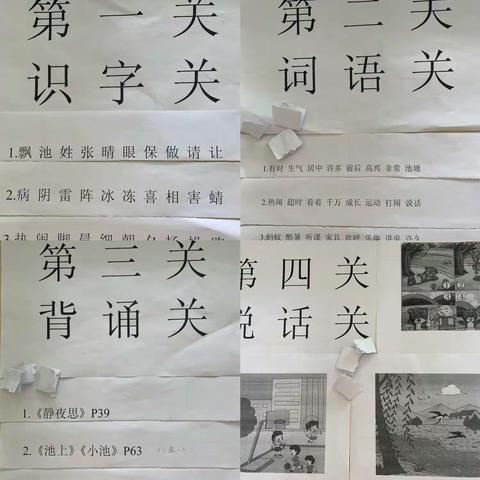 第一关
识字关
1.飘 池 姓 张 晴 眼 保 做 请 让
2.病 阴 雷 阵 冰 冻 喜 相 害 蜻
第二关
词语关
1.有时 生气 居中 许多 前后 高兴 非常 池塘
2.热闹 超时 看着 千万 成长 运动 打闹 说话
3.蚂蚁 酷暑 听课 家具 欢呼 乐趣 讲桌 许久
第三关
背诵关
1.《静夜思》P39
2.《池上》《小池》P63
第四关
说话关
① ②
③ ④